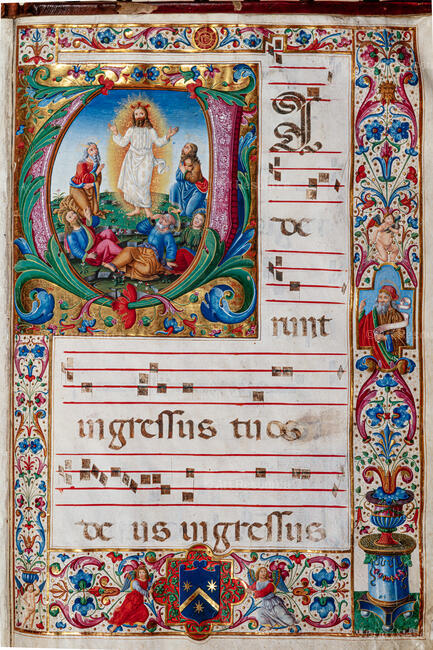 VI
de
runt
ingressus tuos
de us ingressus